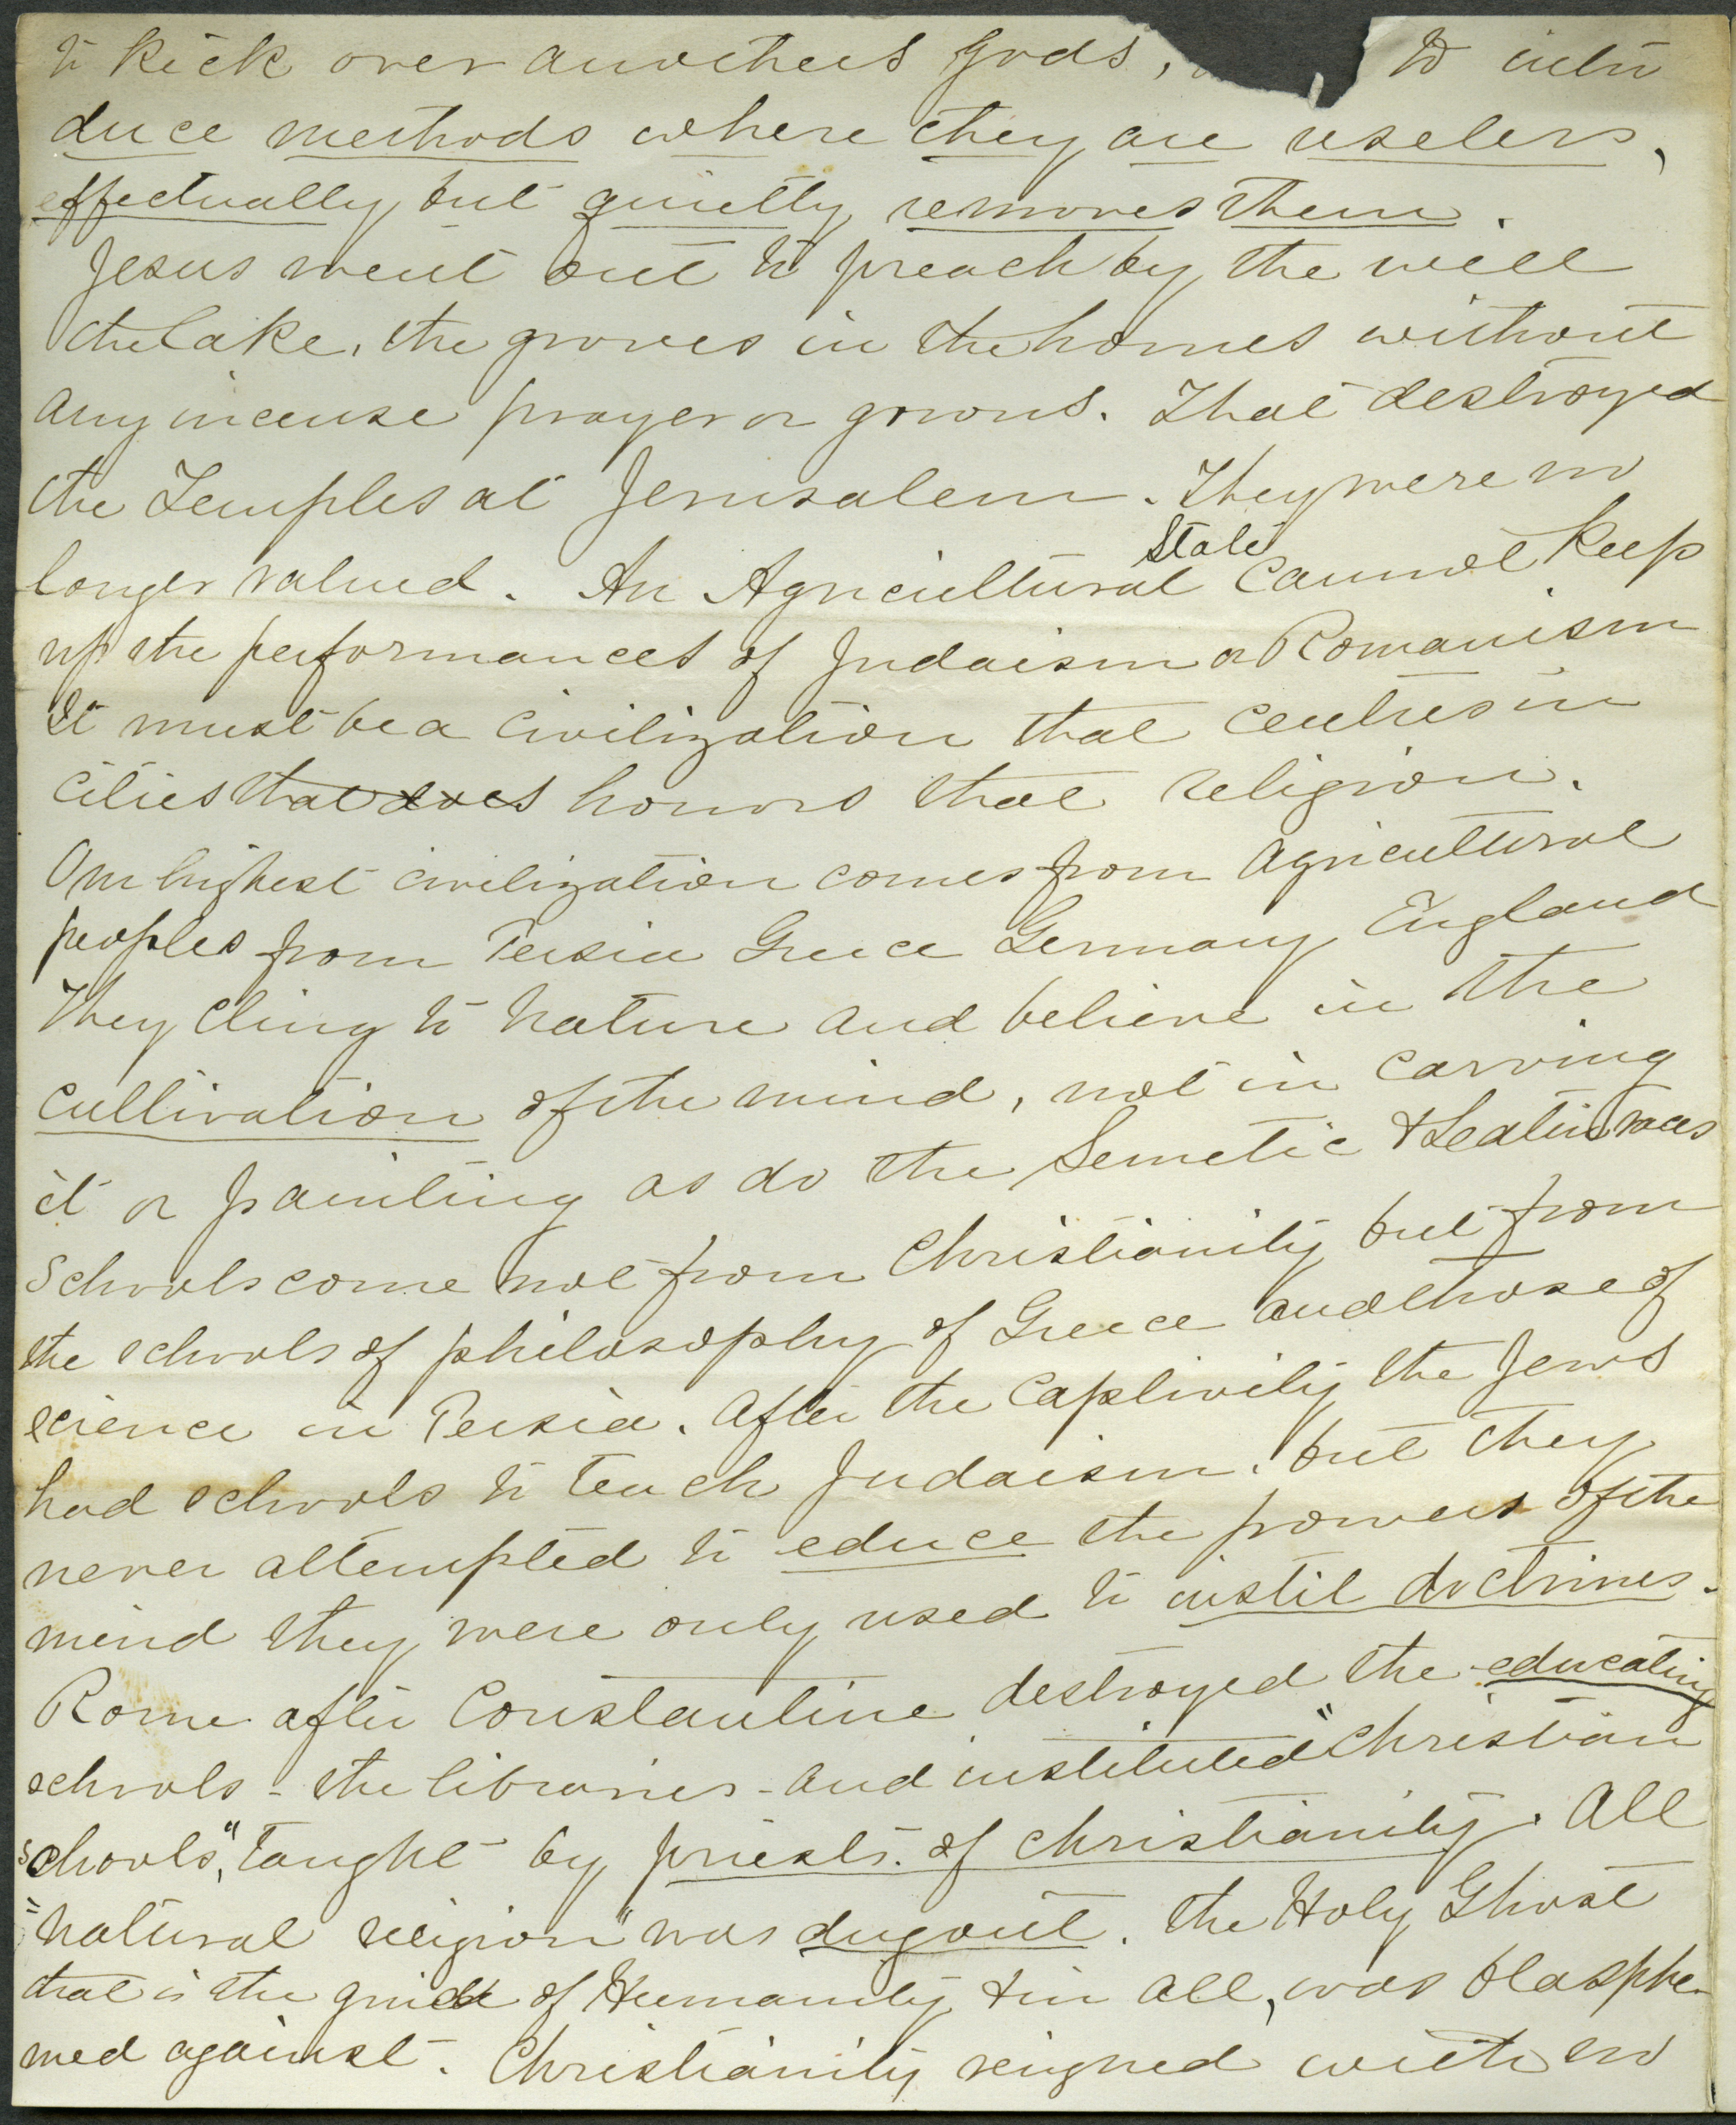 to kick over anothers Gods, to intro
duce methods where they are useless,
effectually but quietly removes them.
Jesus went out to preach by the well
the lake, the groves in the homes without
any incense prayer or gowns. That destroyed
the Temples at Jerusalem. They were no
longer valued. An Agricultural State cannot keep
up the performances of Judaism or Romanism
It must be a civilization that centres in
cities that does honors that religion.
Our highest civilization comes from agricultural
peoples from Persia Greece Germany England
They cling to nature and believe in the
cultivation of the mind, not in carving
it or painting as do the Semetic & Latin races
Schools come not from Christianity but from
the schools of philosophy of Greece and those of
science in Persia. After the Captivity the Jews
had schools to teach Judaism, but they
never attempted to educe the powers of the
mind they were only used to instil doctrines.
Rome after Constantine destroyed the educating
schools - the libraries - and instituted "Christian
schools," taught by priests of christianity. All
"natural religion" was dugout. The Holy Ghost
that is the guide of Humanity & in all, was blasphe-
med against. Christianity reigned with no